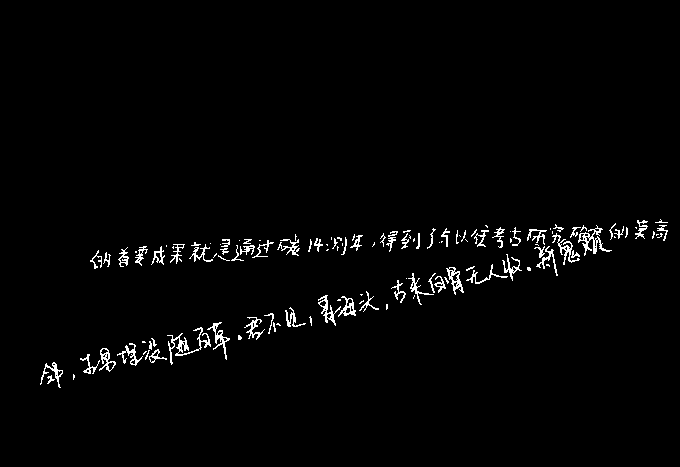 的首要成果就是通过碳14测年,得到了所以往考古研究确定的最高
邻,生男埋没随百草.君不见,青海头,古来白骨无人收.新鬼烦